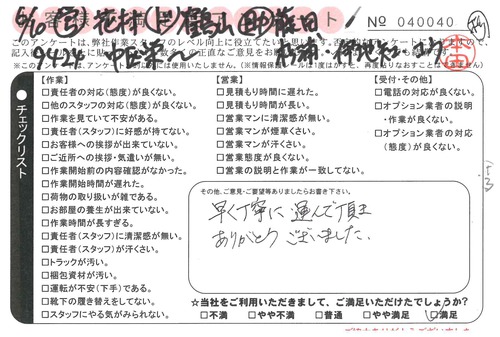 No 040040
このアンケートは、弊社作業スタッフのレベル向上に役立てたいと思います。
チェックリスト
【作業】
□責任者の対応(態度)が良くない。
□他のスタッフの対応(態度)が良くない。
□作業を見ていて不安がある。
□責任者(スタッフ)に好感が持てない。
□お客様への挨拶が出来ていない。
□ご近所への挨拶・気遣いが無い。
□作業開始前の内容確認がなかった。
□作業開始時間が遅れた。
□荷物の取り扱いが雑である。
□お部屋の養生が出来ていない。
□作業時間が長すぎる。
□責任者(スタッフ)に清潔感が無い。
□責任者(スタッフ)が汗くさい。
□トラックが汚い。
□梱包資材が汚い。
□運転が不安(下手)である。
□靴下の履き替えをしてない。
□スタッフにやる気がみられない。
【営業】
□見積もり時間に遅れた。
□見積もり時間が長い。
□営業マンに清潔感が無い。
□営業マンが煙草くさい。
□営業マンが汗くさい。
□営業態度が良くない。
□営業の説明と作業が一致してない。
【受付・その他】
□電話の対応が良くない。
□オプション業者の説明
・作業が良くない。
□オプション業者の対応
(態度)が良くない。
その他、ご意見・ご要望等ありましたらお書き下さい。
早く丁寧に運んで頂き
ありがとうございました。
☆当社をご利用いただきまして、ご満足いただけたでしょうか?
□不満 □やや不満 □普通 □やや満足 □満足